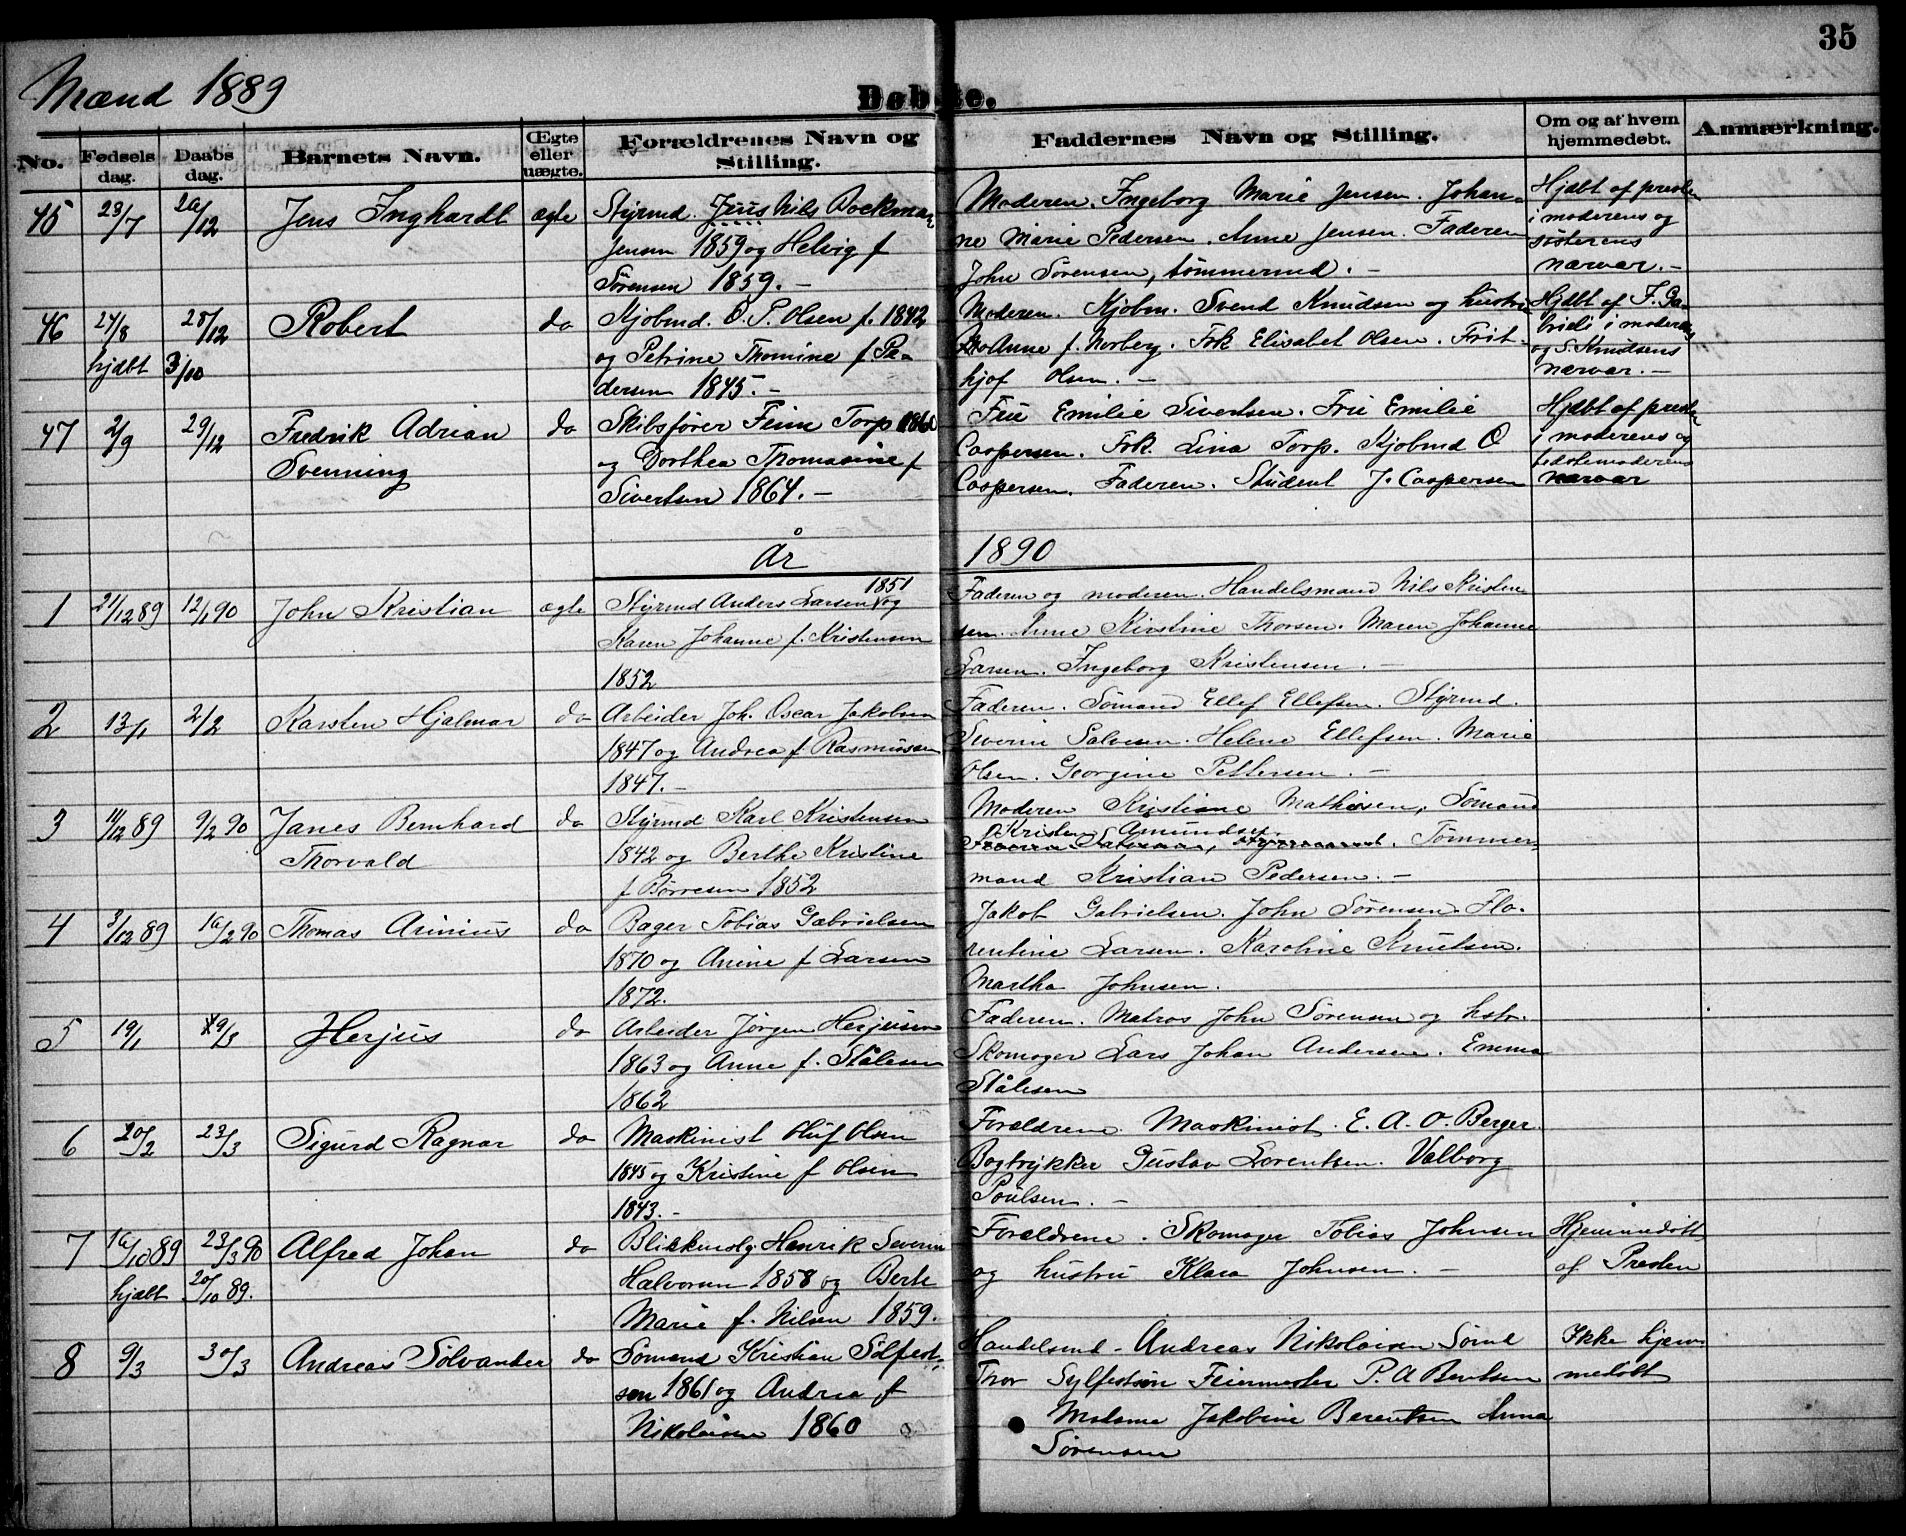 35
Mænd 1889
Døbte.
No. Fødselsdag. Daabsdag. Barnets Navn. Ægte eller uægte. Forældrenes Navn og Stilling. Faddernes Navn og Stilling. Om og af hvem hjemmedøbt. Anmærkning.
45 23/7 26/12 Jens Inghardt ægte Styrmd. Jens Nils Bockman Moderen. Ingeborg Marie Jensen. Johan- Hjdbt af presten
Jensen 1859 og Helvig f ne Marie Pedersen. Anne Jensen. Faderen i moderens og
søsterens
Sørensen 1859. – John Sørensen, tømmermd. – nærvær. –
46 24/8 28/12 Robert do Kjøbmd. O. P. Olsen f. 1842 Moderen. Kjøbm. Svend Knudsen og hustru Hjdbt af F. Ga-
hjdbt 3/10 og Petrine Thomine f Pe- Anne f. Norberg. Frk Elisabet Olsen. Frit- brieli i moderens
og S. Knudsens
dersen 1845. – hjof Olsen. – nærvær. –
47 2/9 29/12 Fredrik Adrian do Skibsfører Finn Torp 1860 Fru Emilie Sivertsen. Fru Emilie Hjdbt af presten
Svenning og Dorthea Thomasine f Caspersen. Frk. Lina Torp. Kjøbmd O i moderens og
bedstemoderens
Sivertsen 1864. – Caspersen. Faderen. Student J. Caspersen nærvær
År 1890
1 21/12 89 12/1 90 John Kristian ægte Styrmd Anders Larsen 1851 og Faderen og moderen. Handelsmand Nils Kristen-
Karen Johanne f. Kristensen sen. Anne Kirstine Thorsen. Maren Johanne
1852 Larsen. Ingeborg Kristensen. –
2 13/1 2/2 Karsten Hjalmar do Arbeider Joh. Oscar Jakobsen Faderen. Sømand Ellef Ellefsen. Styrmd.
1847 og Andrea f. Rasmussen Severin Salvesen. Helene Ellefsen. Marie
1847. – Olsen. Georgine Pettersen. –
3 11/12 89 9/2 90 Janes Bernhard do Styrmd Karl Kristensen Moderen Kristiane Mathisen, Sømand
Thorvald 1842 og Berthe Kristine Kristen Amundsen. Tømmer-
f Børresen 1852 mand Kristian Pedersen. –
4 3/12 89 16/2 90 Thomas Arinius do Bager Tobias Gabrielsen Jakob Gabrielsen. John Sørensen. Flo-
1870 og Anine f Larsen rentine Larsen. Karoline Knutsen.
1872. Martha Johnsen.
5 19/1 9/3 Herjus do Arbeider Jørgen Herjusen Faderen. Matros John Sørensen og hstr.
1863 og Anne f. Stålesen Skomager Lars Johan Andersen. Emma
1862 Stålesen
6 20/2 23/3 Sigurd Ragnar do Maskinist Oluf Olsen Forældrene. Maskinist. E. A. O. Berger.
1845 og Kristine f Olsen Bogtrykker Gustav Lorentsen. Valborg
1843. – Poulsen. –
7 16/10 89 23/3 90 Alfred Johan do Blikkenslg. Henrik Severin Forældrene. Skomager Tobias Johnsen Hjemmedøbt
hjdbt 20/10 89. Halvorsen 1858 og Berte og hustru Klara Johnsen. – af Presten
Marie f. Nilsen 1859.
8 9/3 30/3 Andreas Sølvander do Sømand Kristian Sølfest- Handelsmd – Andreas Nikolaisen Sømd Ikke hjem-
sen 1861 og Andrea f Thor Sylfestsen Feiermester P. A Berntsen medøbt
Nikolaisen 1860 Madame Jakobine Berentsen Anna
Sørensen